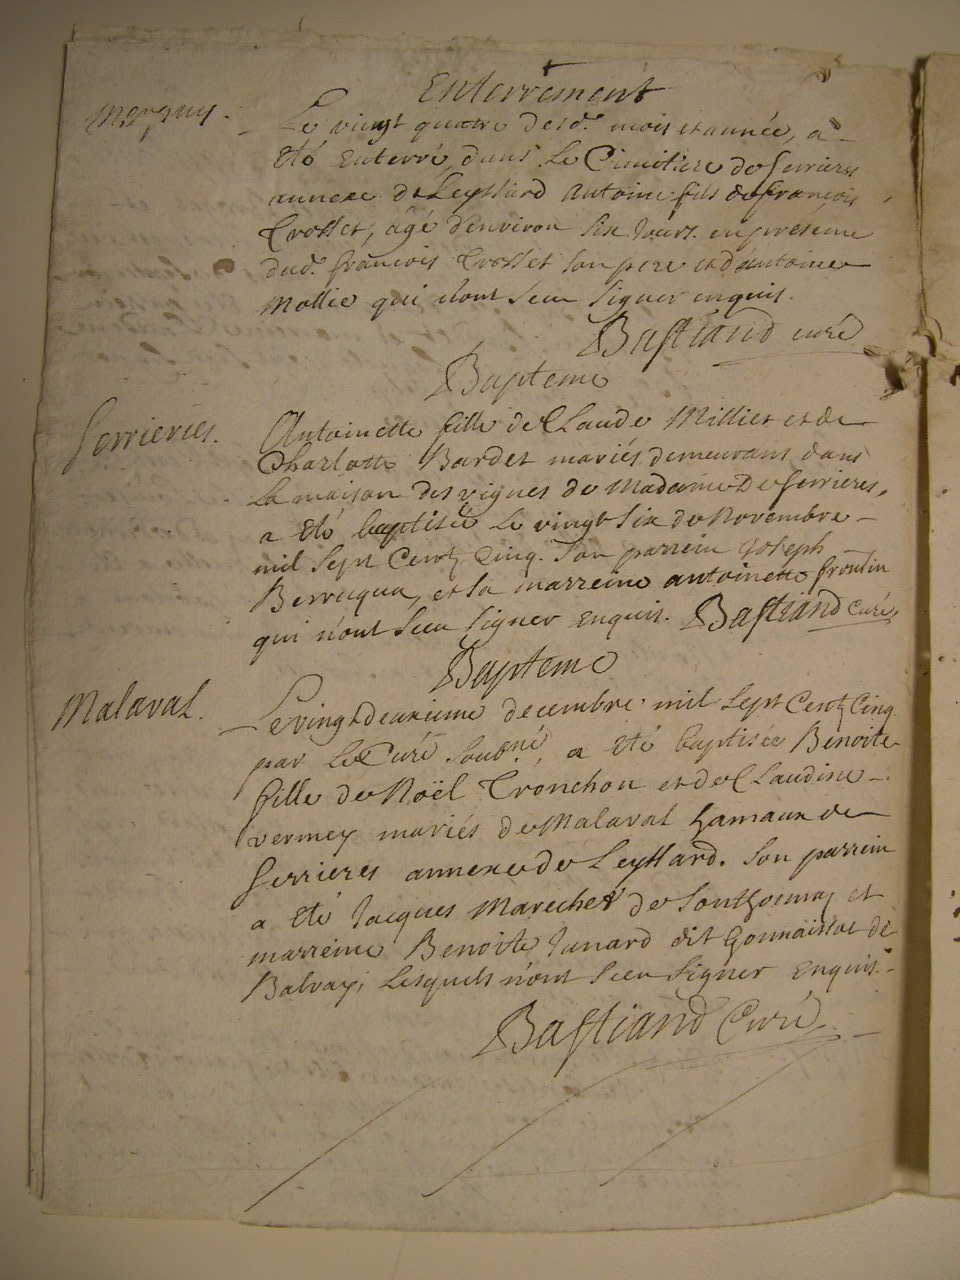 Enterrement
Merpuy.
Le vingt quatre desd. mois et année, a
Eté Enterré dans Le Cimitiere de Serrieres
annexe de Leyssard Antoine fils de françois
Crosset, âgé d'environ six Jours. en présence
dud. françois Crosset son pere et d'antoine
Mollie qui n'ont sceu signer enquis.
Bastiand curé
Bapteme
Serrieres.
Antoinette fille de Claude Millier et de
Charlotte Bardet mariés demeurans dans
La maison des vignes de Madame De Serrieres,
a Eté baptisée Le vingt Six de Novembre
mil Sept Centz Cinq. Son parrein Joseph
Berrucqua, et sa marreine antoinette froutin
qui n'ont sceu signer Enquis. Bastiand Curé,
Bapteme
Malaval.
Le vingt deuxieme decembre mil Sept Centz Cinq
par Le Curé Soub.né, a Eté baptisée Benoite
fille de Noël Tronchon et de Claudine
vermey mariés de Malaval hamaux de
Serrieres annexe de Leyssard. Son parrein
a Eté Jacques Marechet de Sonthonnay et
marreine Benoite Junard dit Gonnaissoe de
Balvay, Lesquels n'ont sceu signer Enquis.
Bastiand Curé